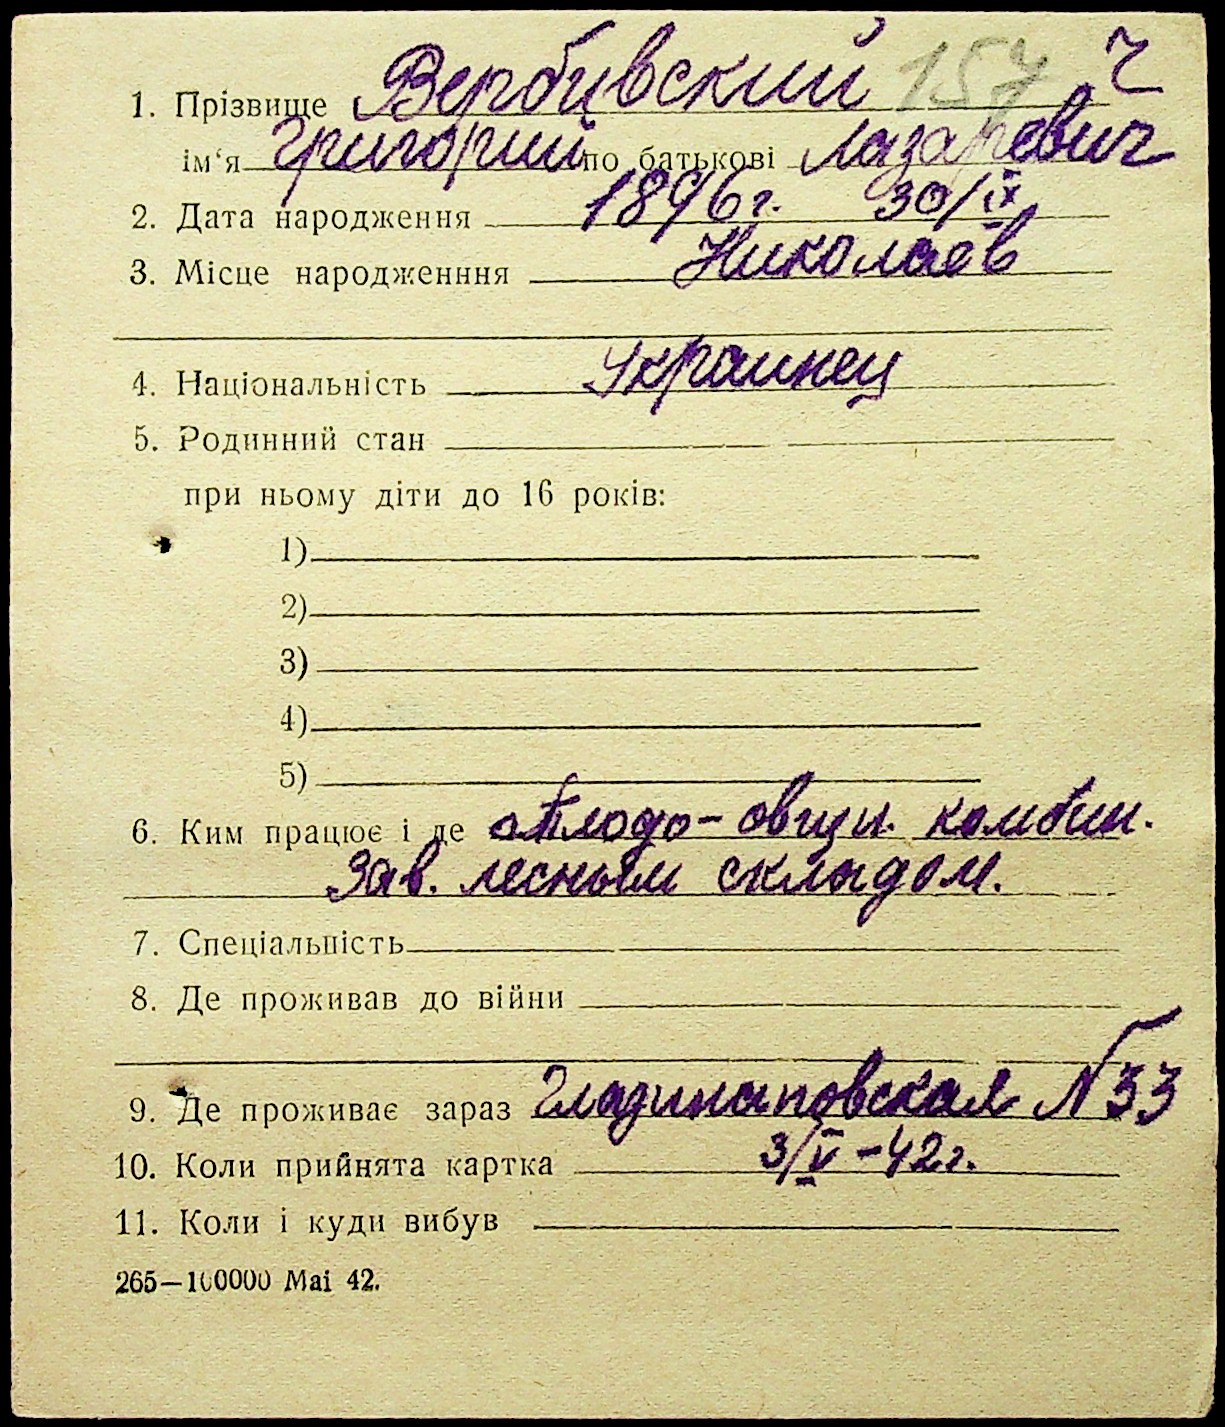 1. Прізвище Вербивский 157 Ч
ім‘я Григорий по батькові Лазаревич
2. Дата народження 1896 г. 30/IX
3. Місце народженння Николаев
4. Національність Украинец
5. Родинний стан
при ньому діти до 16 років:
1)
2)
3)
4)
5)
6. Ким працює і де Плодо-овщн. комбин.
Зав. лесным складом.
7. Спеціальність
8. Де проживав до війни
9. Де проживає зараз №33
10. Коли прийнята картка 3/V-42 г.
11. Коли і куди вибув
265—100000 Mai 42.